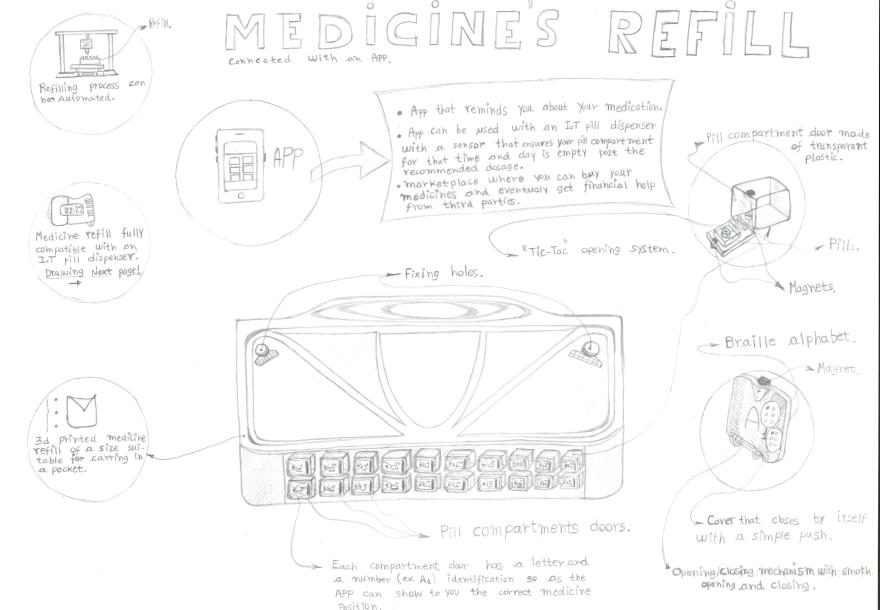 MEDICINE'S REFILL
Connected with an APP.
Refill.
Refilling process can
be Automated.
APP
• App that reminds you about your medication.
• App can be used with an IoT pill dispenser
with a sensor that ensures your pill compartment
for that time and day is empty post the
recommended dosage.
• marketplace where you can buy your
medicines and eventualy get financial help
from third parties.
Pill compartment door made
of transparent
plastic.
Medicine refill fully
compatible with an
IoT pill dispenser.
Drawing Next page!
"Tic-Tac" opening system.
Pills.
Magnets.
Fixing holes.
Braille alphabet.
Magnet.
A
3d printed medicine
refill of a size sui-
table for carring in
a pocket.
Pill compartments doors.
Cover that closes by itself
with a simple push.
Each compartment door has a letter and
a number (ex. A1) identification so as the
APP can show to you the correct medicine
Position.
Opening/closing mechanism with smoth
opening and closing.